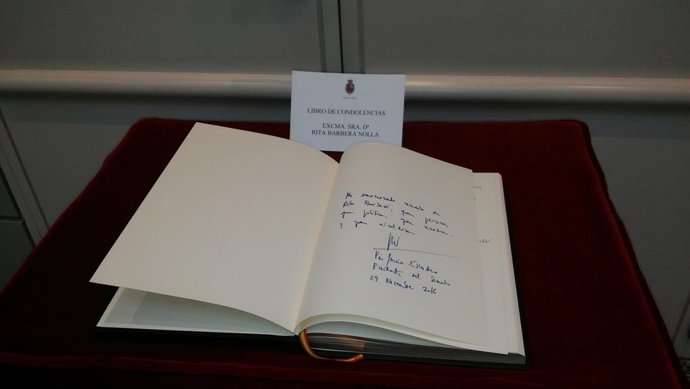 SENADO
LIBRO DE CONDOLENCIAS
EXCMA. SRA. Dª
RITA BARBERÁ NOLLA
Mi emocionado recuerdo de
Rita Barberá, gran persona,
gran política, gran senadora,
y gran alcaldesa.
Pío García-Escudero
Presidente del Senado
29 Noviembre 2016